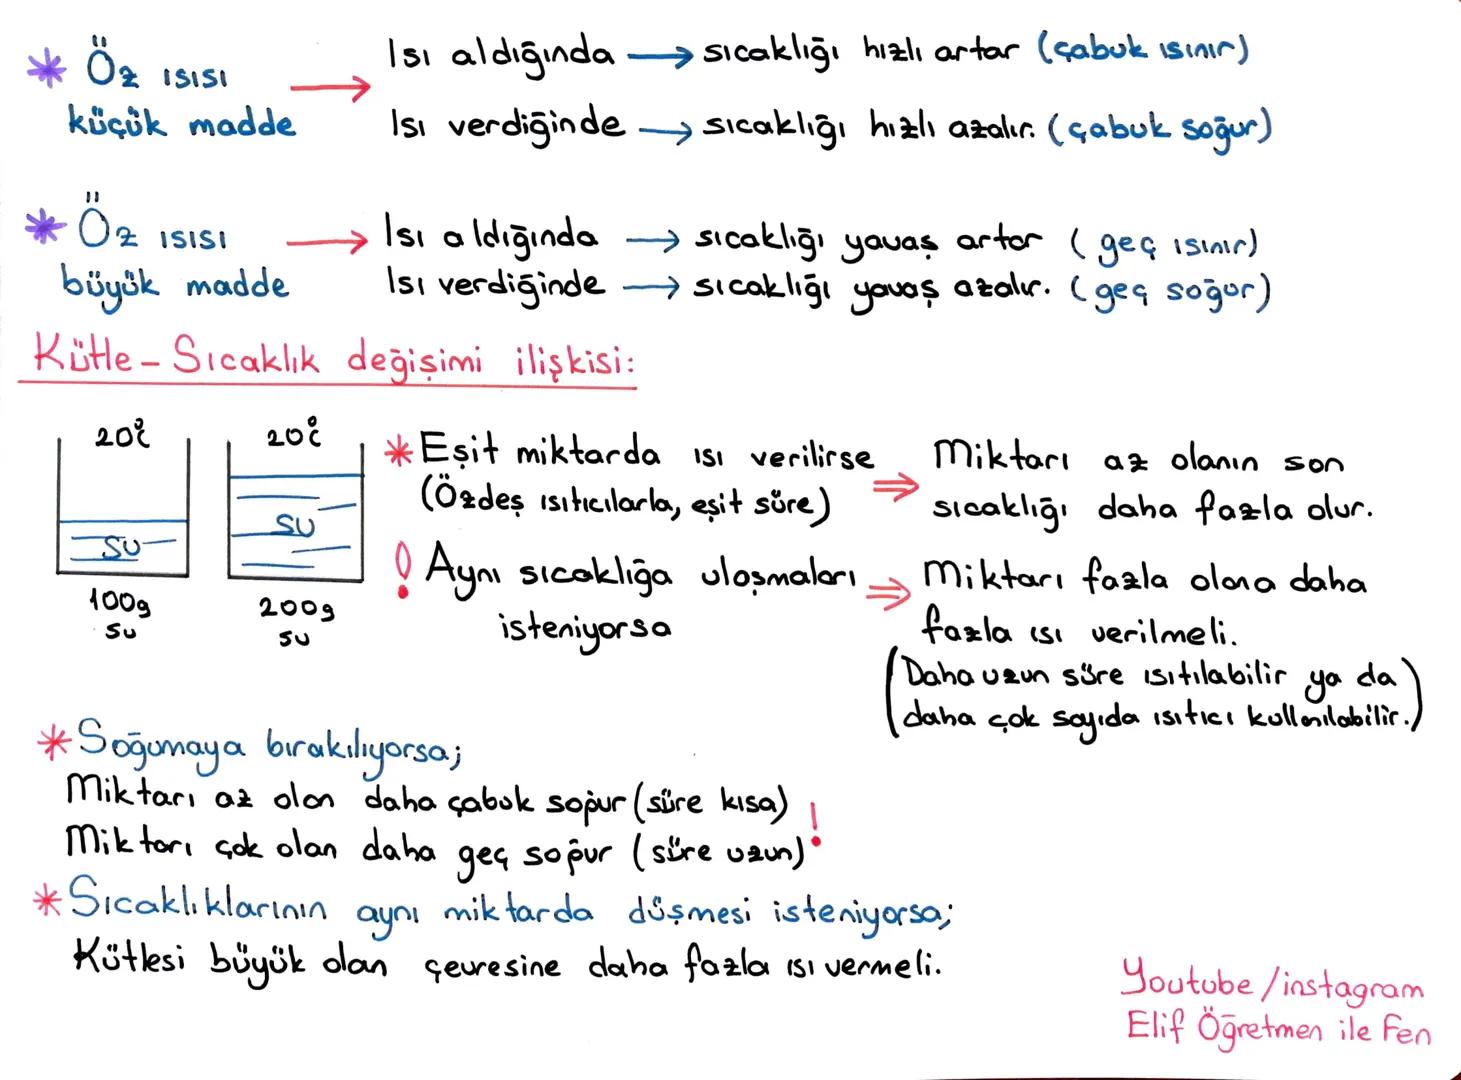 * Öz ısısı küçük madde → Isı aldığında → sıcaklığı hızlı artar (çabuk ısınır)
Isı verdiğinde → sıcaklığı hızlı azalır. (çabuk soğur)
* Öz ısısı büyük madde → Isı aldığında → sıcaklığı yavaş artar (geç ısınır)
Isı verdiğinde → sıcaklığı yavaş azalır. (geç soğur)
Kütle - Sıcaklık değişimi ilişkisi:
20°C
su
100g
su
20°C
su
200g
su
* Eşit miktarda ısı verilirse
(Özdeş ısıtıcılarla, eşit süre)
⇒ Miktarı az olanın son
sıcaklığı daha fazla olur.
! Aynı sıcaklığa ulaşmaları
isteniyorsa
⇒ Miktarı fazla olana daha
fazla ısı verilmeli.
(Daha uzun süre ısıtılabilir ya da
daha çok sayıda ısıtıcı kullanılabilir.)
* Soğumaya bırakılıyorsa;
Miktarı az olan daha çabuk soğur (süre kısa)
Miktarı çok olan daha geç soğur (süre uzun) !
* Sıcaklıklarının aynı miktarda düşmesi isteniyorsa;
Kütlesi büyük olan çevresine daha fazla ısı vermeli.
Youtube / instagram
Elif Öğretmen ile Fen